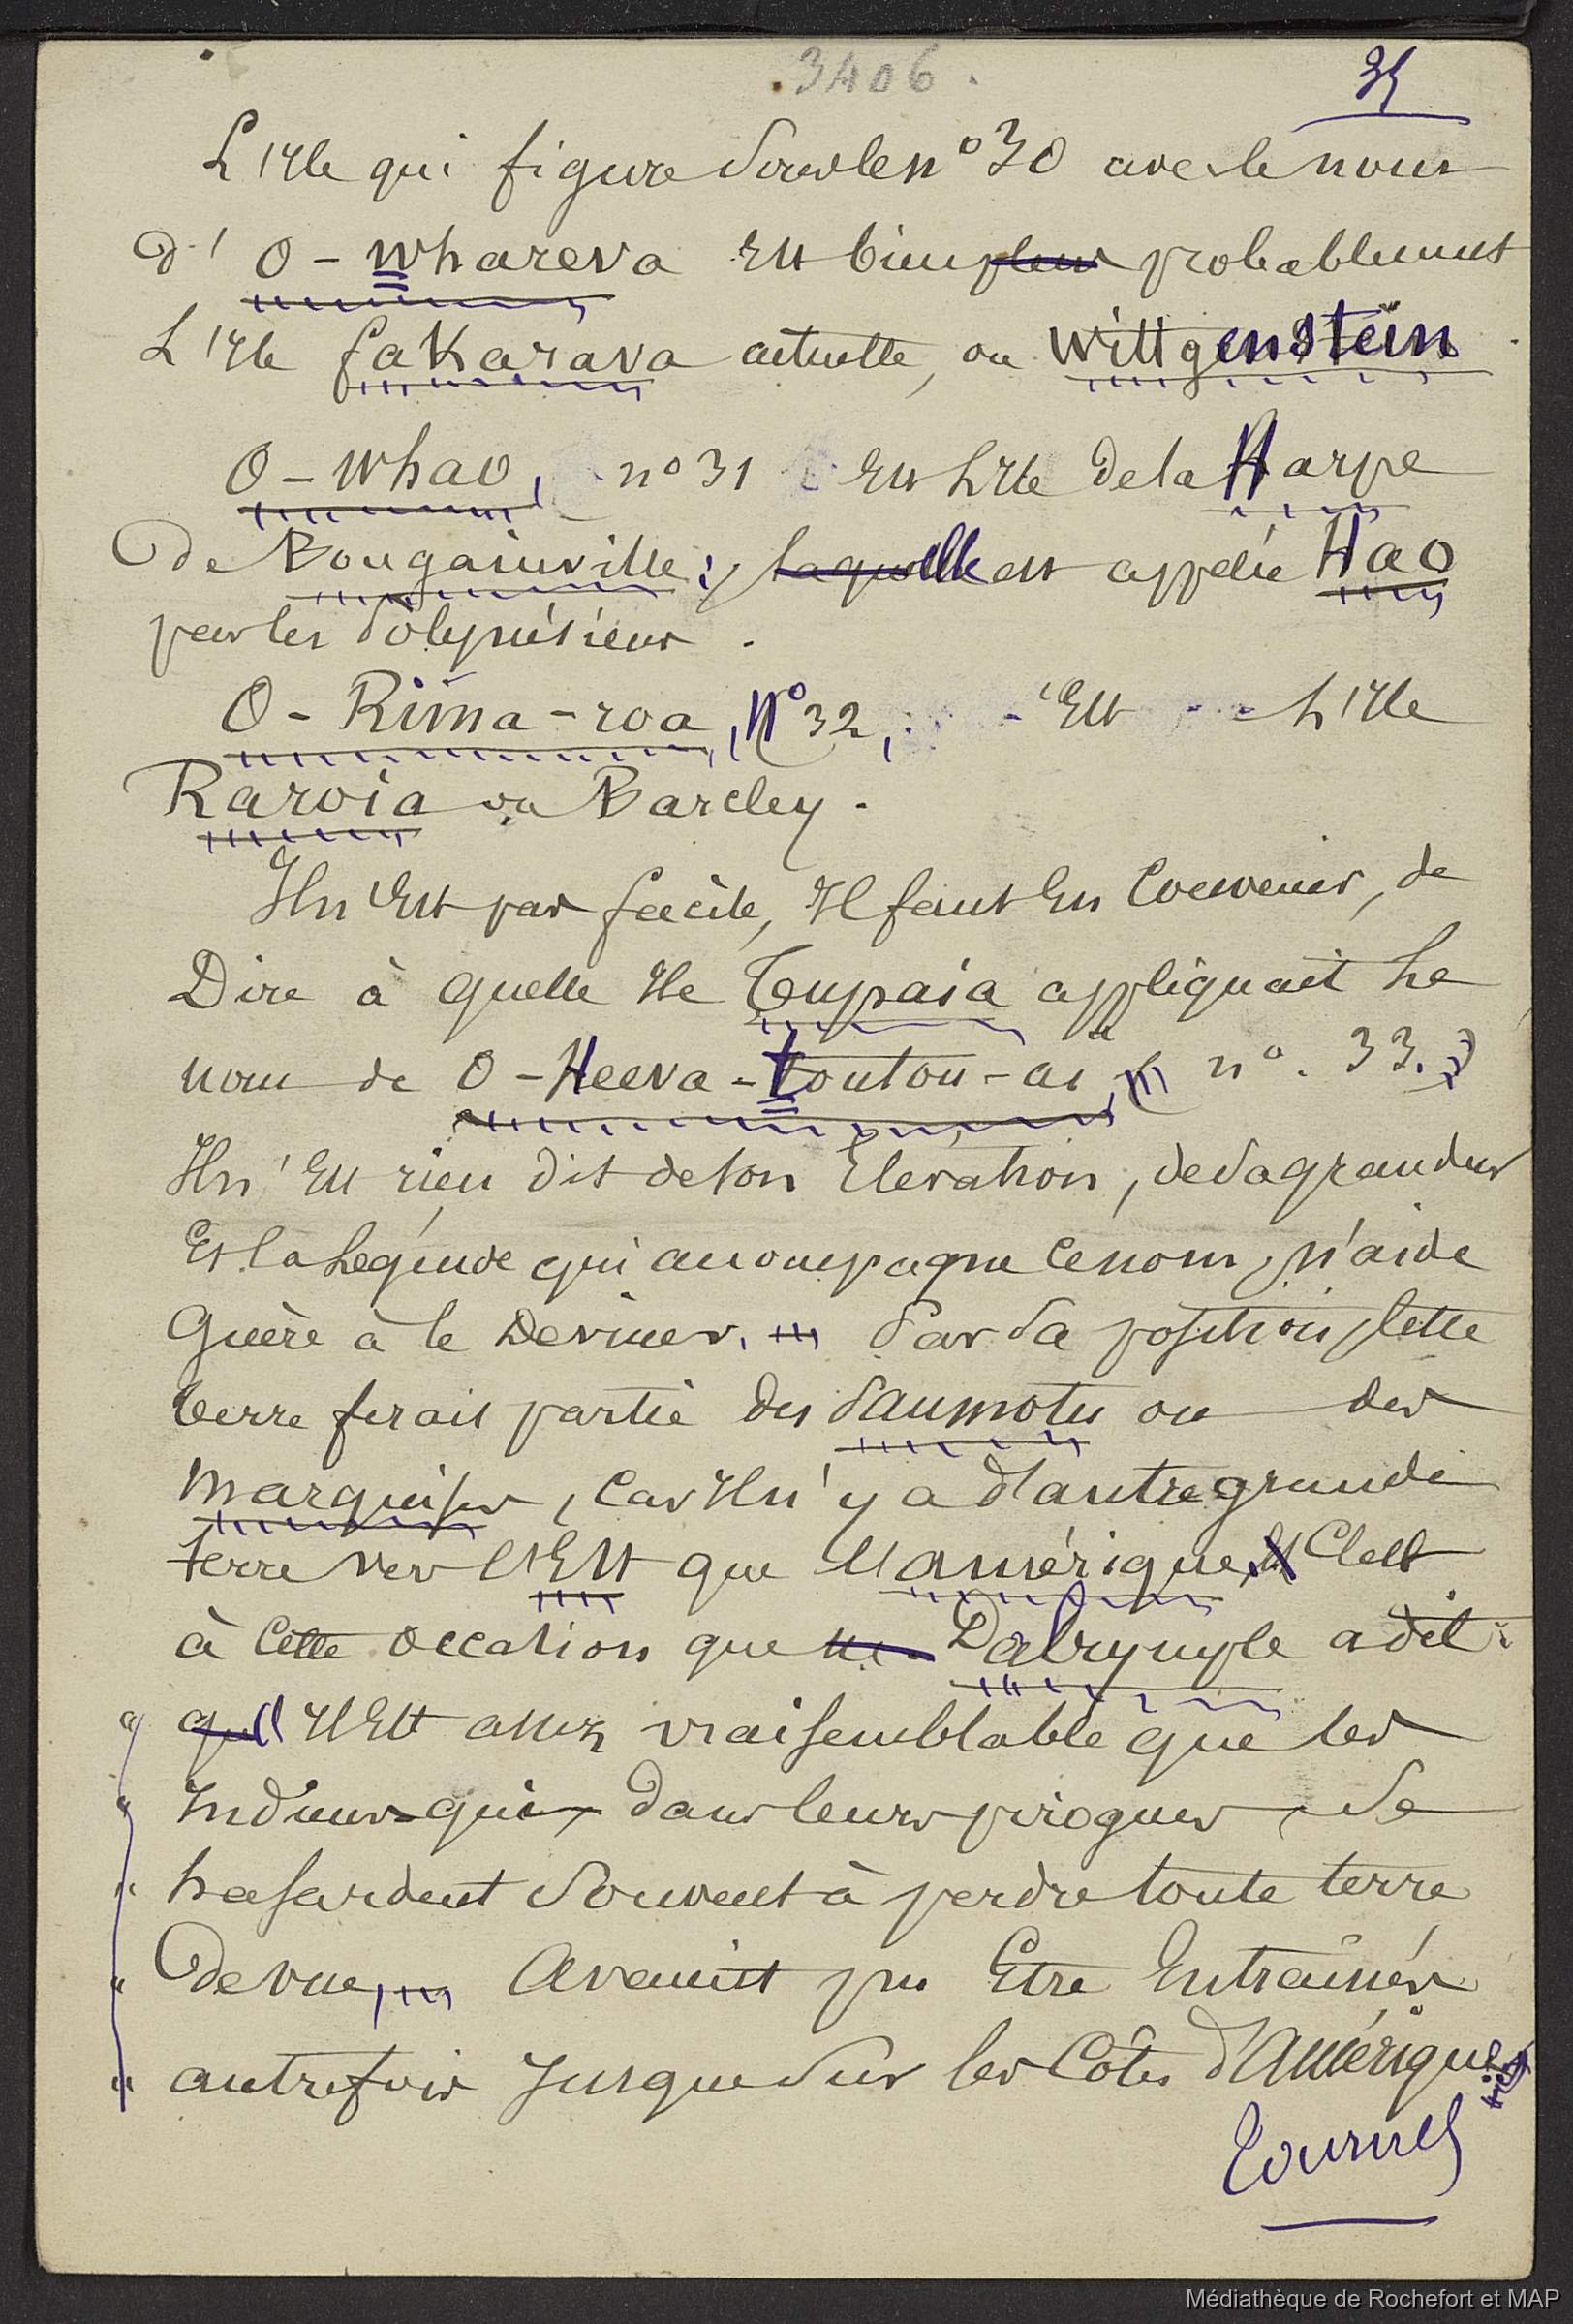 3406.
35
L'Ile qui figure sous le n° 30 avec le nom
d' O-Whareva est bien plus probablement
L'Ile Fakarava actuelle, ou Wittgenstein
O-Whao, n° 31 Est L'Ile de la Harpe
de Bougainville; laquelle est appelée Hao
par les Polynésiens.
O-Rima-roa, N° 32, Est L'Ile
Raroia ou Barcley.
Il n'Est pas facile, Il faut En Convenir, de
Dire à quelle Ile Tupaia appliquait Le
nom de O-Heeva-toutou-ai n°. 33.
Il n'Est rien dit de son Elévation, de sa grandeur
Et la Légende qui accompagne ce nom, n'aide
Guère à le Deviner, Par sa position, Cette
terre ferait partie des Paumotu ou des
Marquises, Car Il n'y a d'autre grande
terre vers l'Est que l'Amérique, C'est
à Cette occasion que Dalrymple a dit:
" qu'il Il Est assez vraisemblable que les
" Indiens qui, dans leurs pirogues, se
" hasardent souvent à perdre toute terre
" de vue, Avaient pu Etre Entraînés
" autrefois Jusque sur les Côtes d'Amérique
Tournez
Médiathèque de Rochefort et MAP